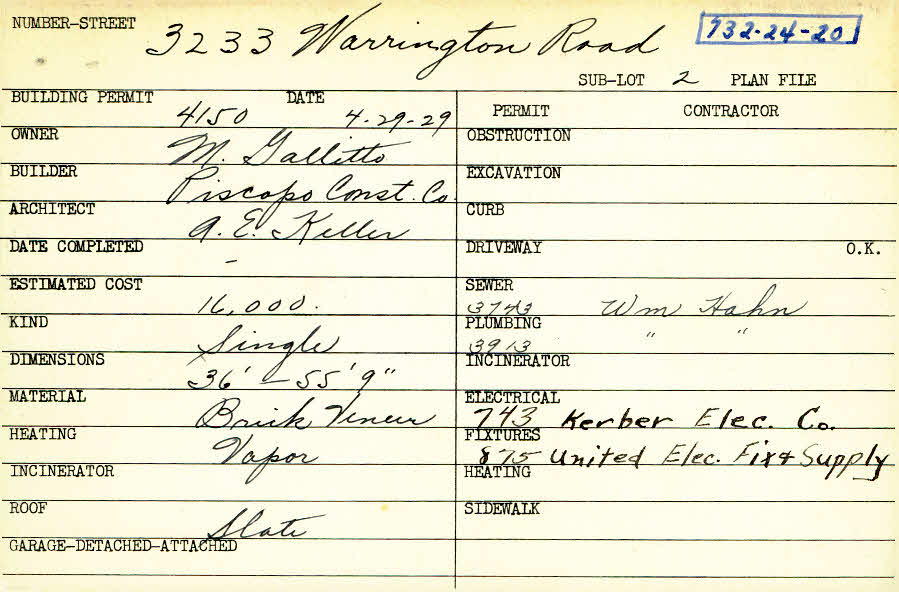 NUMBER-STREET 3233 Warrington Road 732-24-20
SUB-LOT 2 PLAN FILE
BUILDING PERMIT 4150 DATE 4-29-29
OWNER M. Gallitto
BUILDER Piscopo Const. Co.
ARCHITECT A. E. Keller
DATE COMPLETED -
ESTIMATED COST 16,000.
KIND Single
DIMENSIONS 36' - 55' 9"
MATERIAL Brick Veneer
HEATING Vapor
INCINERATOR
ROOF Slate
GARAGE-DETACHED-ATTACHED
PERMIT CONTRACTOR
OBSTRUCTION
EXCAVATION
CURB
DRIVEWAY O.K.
SEWER 3743 Wm Hahn
PLUMBING 3913 " "
INCINERATOR
ELECTRICAL 743 Kerber Elec. Co.
FIXTURES 875 United Elec. Fix & Supply
HEATING
SIDEWALK